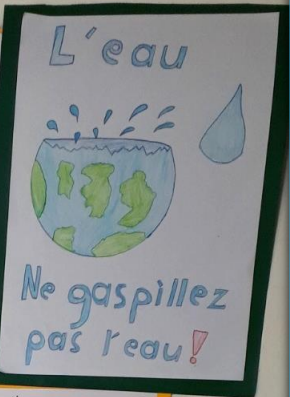 L'eau
Ne gaspillez
pas l'eau!